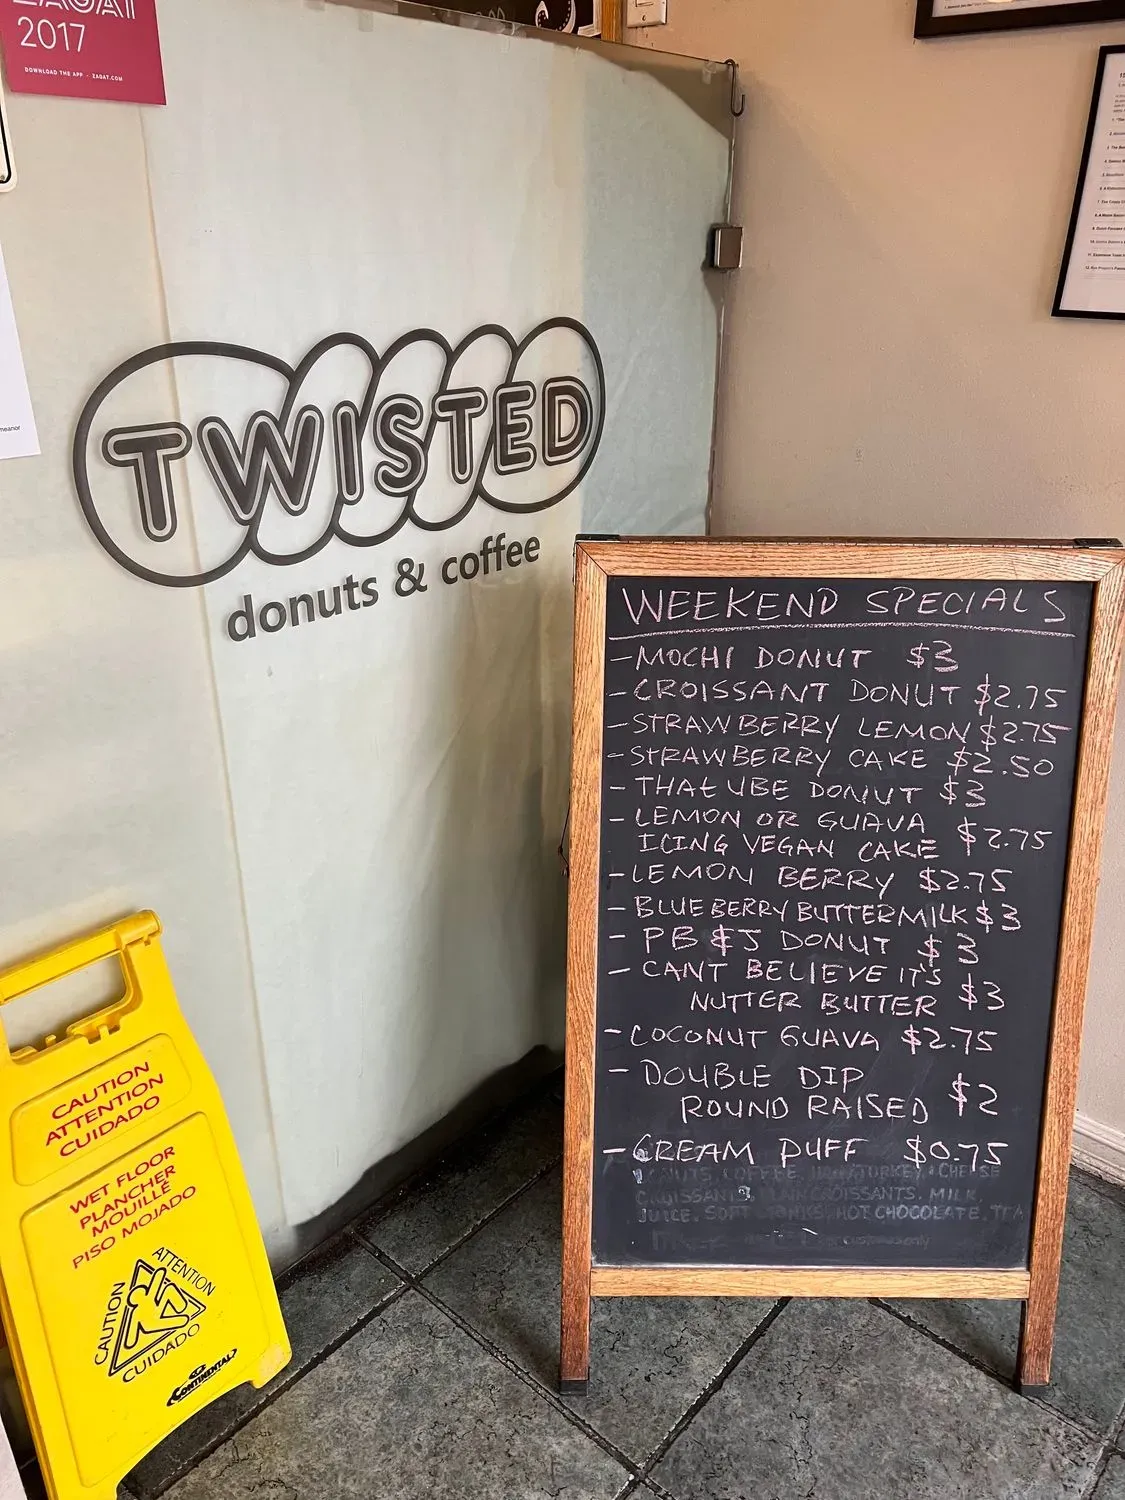 2017
DOWNLOAD THE APP · ZAGAT.COM
TWISTED
donuts & coffee
WEEKEND SPECIALS
- MOCHI DONUT $3
- CROISSANT DONUT $2.75
- STRAWBERRY LEMON $2.75
- STRAWBERRY CAKE $2.50
- THAT UBE DONUT $3
- LEMON OR GUAVA
ICING VEGAN CAKE $2.75
- LEMON BERRY $2.75
- BLUEBERRY BUTTERMILK $3
- PB & J DONUT $3
- CANT BELIEVE IT'S
NUTTER BUTTER $3
- COCONUT GUAVA $2.75
- DOUBLE DIP
ROUND RAISED $2
- CREAM PUFF $0.75
COFFEE TURKEY & CHEESE
MILK,
JUICE, HOT CHOCOLATE, TEA
CAUTION
ATTENTION
CUIDADO
WET FLOOR
PLANCHER
MOUILLÉ
PISO MOJADO
CAUTION
ATTENTION
CUIDADO
CONTINENTAL